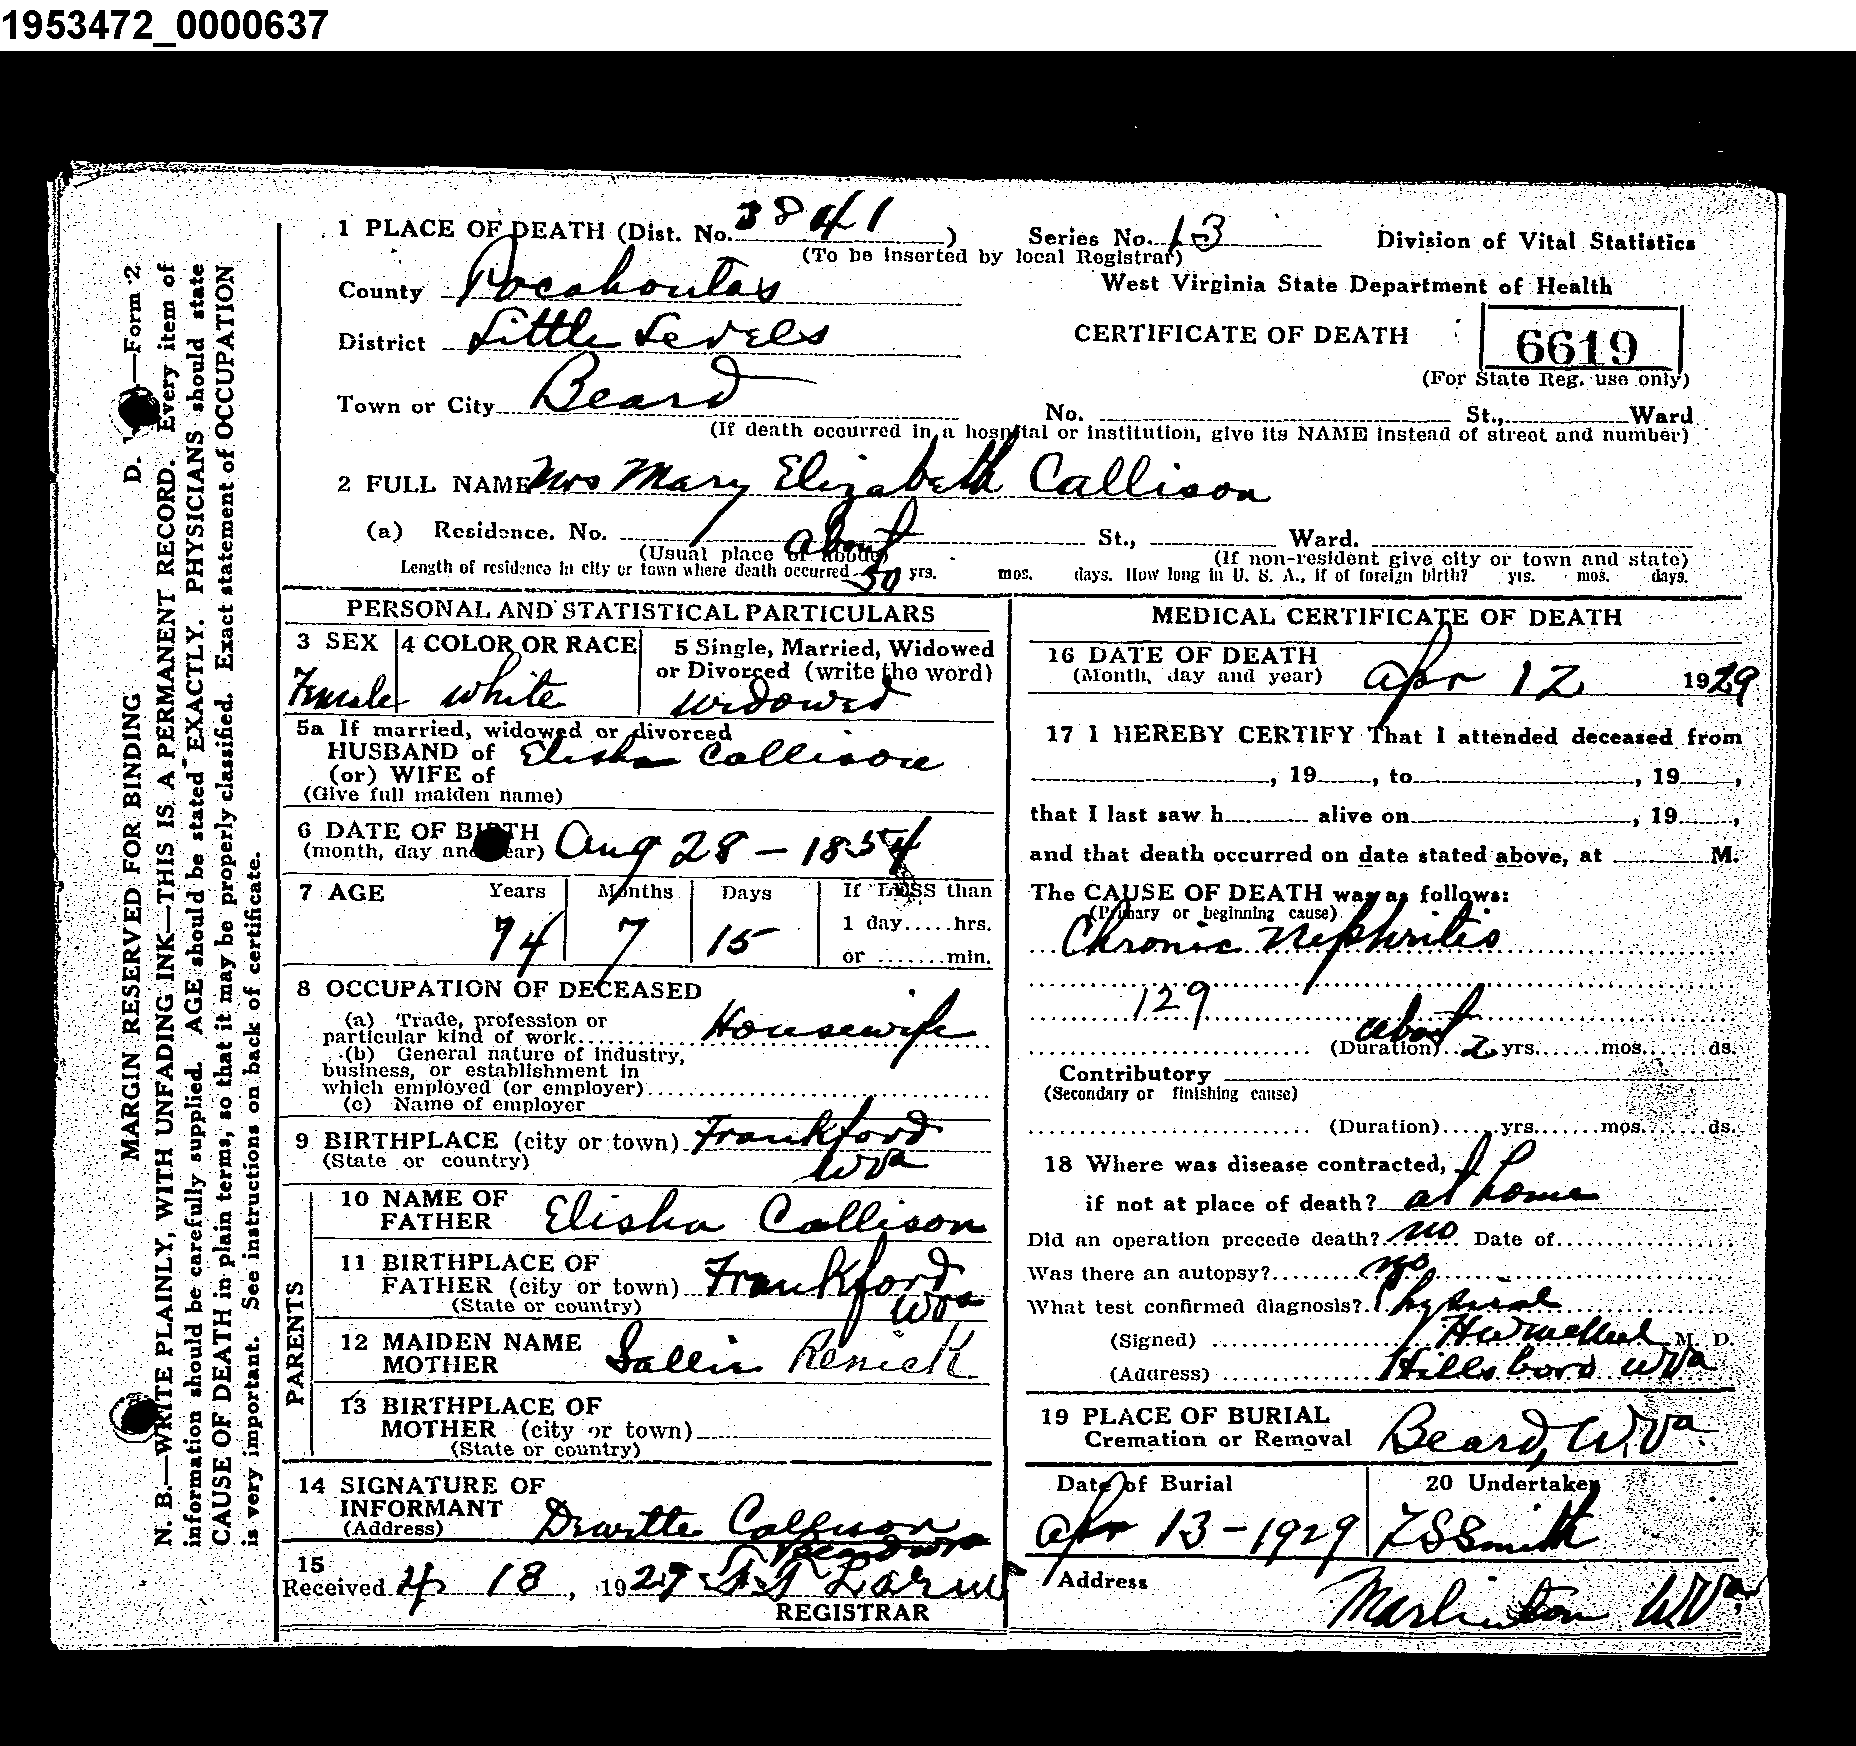 1953472_0000637
1 PLACE OF DEATH (Dist. No. 3841 ) Series No. 13 Division of Vital Statistics
(To be inserted by local Registrar)
County Pocahontas West Virginia State Department of Health
District Little Levels CERTIFICATE OF DEATH 6619
(For State Reg. use only)
Town or City Beard No. St., Ward
(If death occurred in a hospital or institution, give its NAME instead of street and number)
2 FULL NAME Mrs Mary Elizabeth Callison
(a) Residence. No. St., Ward.
(Usual place of abode) (If non-resident give city or town and state)
Length of residence in city or town where death occurred about 50 yrs. mos. days. How long in U. S. A., if of foreign birth? yrs. mos. days.
PERSONAL AND STATISTICAL PARTICULARS
3 SEX 4 COLOR OR RACE 5 Single, Married, Widowed
or Divorced (write the word)
Female white widowed
5a If married, widowed or divorced
HUSBAND of Elisha Callison
(or) WIFE of
(Give full maiden name)
6 DATE OF BIRTH
(month, day and year) Aug 28 - 1854
7 AGE Years Months Days If LESS than
1 day.....hrs.
74 7 15
or .......min.
8 OCCUPATION OF DECEASED
(a) Trade, profession or
particular kind of work Housewife
(b) General nature of industry,
business, or establishment in
which employed (or employer)
(c) Name of employer
9 BIRTHPLACE (city or town) Frankford
(State or country) WVa
PARENTS
10 NAME OF
FATHER Elisha Callison
11 BIRTHPLACE OF
FATHER (city or town) Frankford
(State or country) WVa
12 MAIDEN NAME
MOTHER Sallie Renick
13 BIRTHPLACE OF
MOTHER (city or town)
(State or country)
14 SIGNATURE OF
INFORMANT
(Address) Dewitte Callison
15
Received 4 18, 1929
REGISTRAR
MEDICAL CERTIFICATE OF DEATH
16 DATE OF DEATH
(Month, day and year) Apr 12 1929
17 I HEREBY CERTIFY That I attended deceased from
, 19 , to , 19 ,
that I last saw h alive on , 19 ,
and that death occurred on date stated above, at M.
The CAUSE OF DEATH was as follows:
(Primary or beginning cause)
Chronic Nephritis
129
about
(Duration) 2 yrs. mos. ds.
Contributory
(Secondary or finishing cause)
(Duration) yrs. mos. ds.
18 Where was disease contracted,
if not at place of death? at home
Did an operation precede death? no Date of
Was there an autopsy? no
What test confirmed diagnosis? Physical
(Signed) M. D.
(Address) Hillsboro WVa
19 PLACE OF BURIAL
Cremation or Removal Beard, W.Va.
Date of Burial 20 Undertaker
Apr 13 - 1929 Smith
Address
Marlinton WVa
D. —Form 2
MARGIN RESERVED FOR BINDING
N. B.—WRITE PLAINLY, WITH UNFADING INK—THIS IS A PERMANENT RECORD. Every item of
information should be carefully supplied. AGE should be stated EXACTLY. PHYSICIANS should state
CAUSE OF DEATH in plain terms, so that it may be properly classified. Exact statement of OCCUPATION
is very important. See instructions on back of certificate.